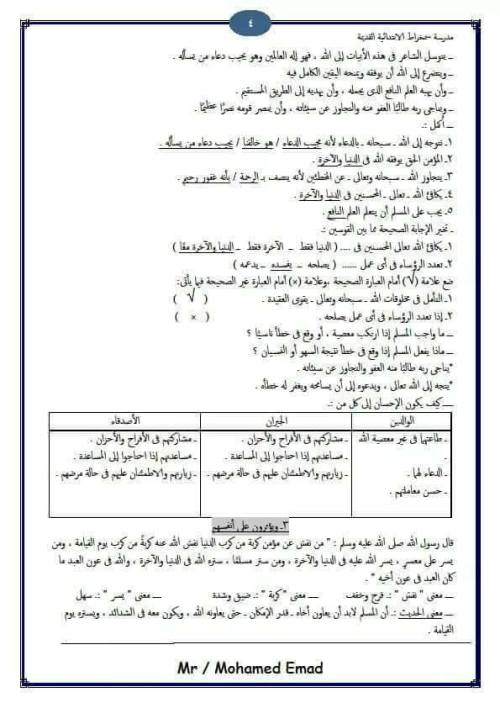 ٤
مدرسة سمخراط الابتدائية القديمة
ـ يتوسل الشاعر فى هذه الأبيات إلى الله ، فهو إله العالمين وهو يجيب دعاء من يسأله .
ـ ويتضرع إلى الله أن يوفقه ويمنحه اليقين الكامل فيه
ـ وأن يهبه العلم النافع الذى يجمله ، وأن يهديه إلى الطريق المستقيم .
ـ ويناجى ربه طالبًا العفو منه والتجاوز عن سيئاته ، وأن ينصر قومه نصرًا عظيمًا .
ـ أكمل :ـ
١ـ نتوجه إلى الله ـ سبحانه ـ بالدعاء لأنه مجيب الدعاء / هو خالقنا / يجيب دعاء من يسأله .
٢ـ المؤمن الحق يوفقه الله فى الدنيا والآخرة .
٣ـ يتجاوز الله ـ سبحانه وتعالى ـ عن المخطئين لأنه يتصف بـ الرحمة / بأنه غفور رحيم .
٤ـ يكافئ الله ـ تعالى ـ المحسنين فى الدنيا والآخرة .
٥ـ يجب على المسلم أن يتعلم العلم النافع .
ـ تخير الإجابة الصحيحة مما بين القوسين :ـ
١ـ يكافئ الله تعالى المحسنين فى .... ( الدنيا فقط ـ الآخرة فقط ـ الدنيا والآخرة معًا )
٢ـ تعدد الرؤساء فى أى عمل ...... ( يصلحه ـ يفسده ـ يدعمه )
ضع علامة (√) أمام العبارة الصحيحة ،وعلامة (×) أمام العبارة غير الصحيحة فيما يأتى:
١ـ التأمل فى مخلوقات الله ـ سبحانه وتعالى ـ يقوى العقيدة . ( √ )
٢ـ إذا تعدد الرؤساء فى أى عمل يصلحه . ( × )
ـ ما واجب المسلم إذا ارتكب معصية ، أو وقع فى خطأ ناسيًا ؟
ـ ماذا يفعل المسلم إذا وقع فى خطأ نتيجة السهو أو النسيان ؟
*يناجى ربه طالبًا منه العفو والتجاوز عن سيئاته .
*يتجه إلى الله تعالى ، ويدعوه إلى أن يسامحه ويغفر له خطأه .
ـ كيف يكون الإحسان إلى كل من :ـ
الوالدين الجيران الأصدقاء
ـ طاعتهما فى غير معصية الله ـ مشاركتهم فى الأفراح والأحزان . ـ مشاركتهم فى الأفراح والأحزان .
. ـ مساعدتهم إذا احتاجوا إلى المساعدة . ـ مساعدتهم إذا احتاجوا إلى المساعدة .
ـ الدعاء لهما . ـ زيارتهم والاطمئنان عليهم فى حالة مرضهم . ـ زيارتهم والاطمئنان عليهم فى حالة مرضهم .
ـ حسن معاملتهم .
٣ـ ويؤثرون على أنفسهم
قال رسول الله صلى الله عليه وسلم : " من نفس عن مؤمن كربة من كرب الدنيا نفس الله عنه كربةً من كرب يوم القيامة ، ومن
يسر على معسرٍ ، يسر الله عليه فى الدنيا والآخرة ، ومن ستر مسلمًا ، ستره الله فى الدنيا والآخرة ، والله فى عون العبد ما
كان العبد فى عون أخيه " .
ـ معنى " نفس " :ـ فرج وخفف ـ معنى " كربة " :ـ ضيق وشدة ـ معنى " يسر " :ـ سهل
ـ معنى الحديث :ـ أن المسلم لابد أن يعاون أخاه ـ قدر الإمكان ـ حتى يعاونه الله ، ويكون معه فى الشدائد ، ويستره يوم
القيامة .
Mr / Mohamed Emad